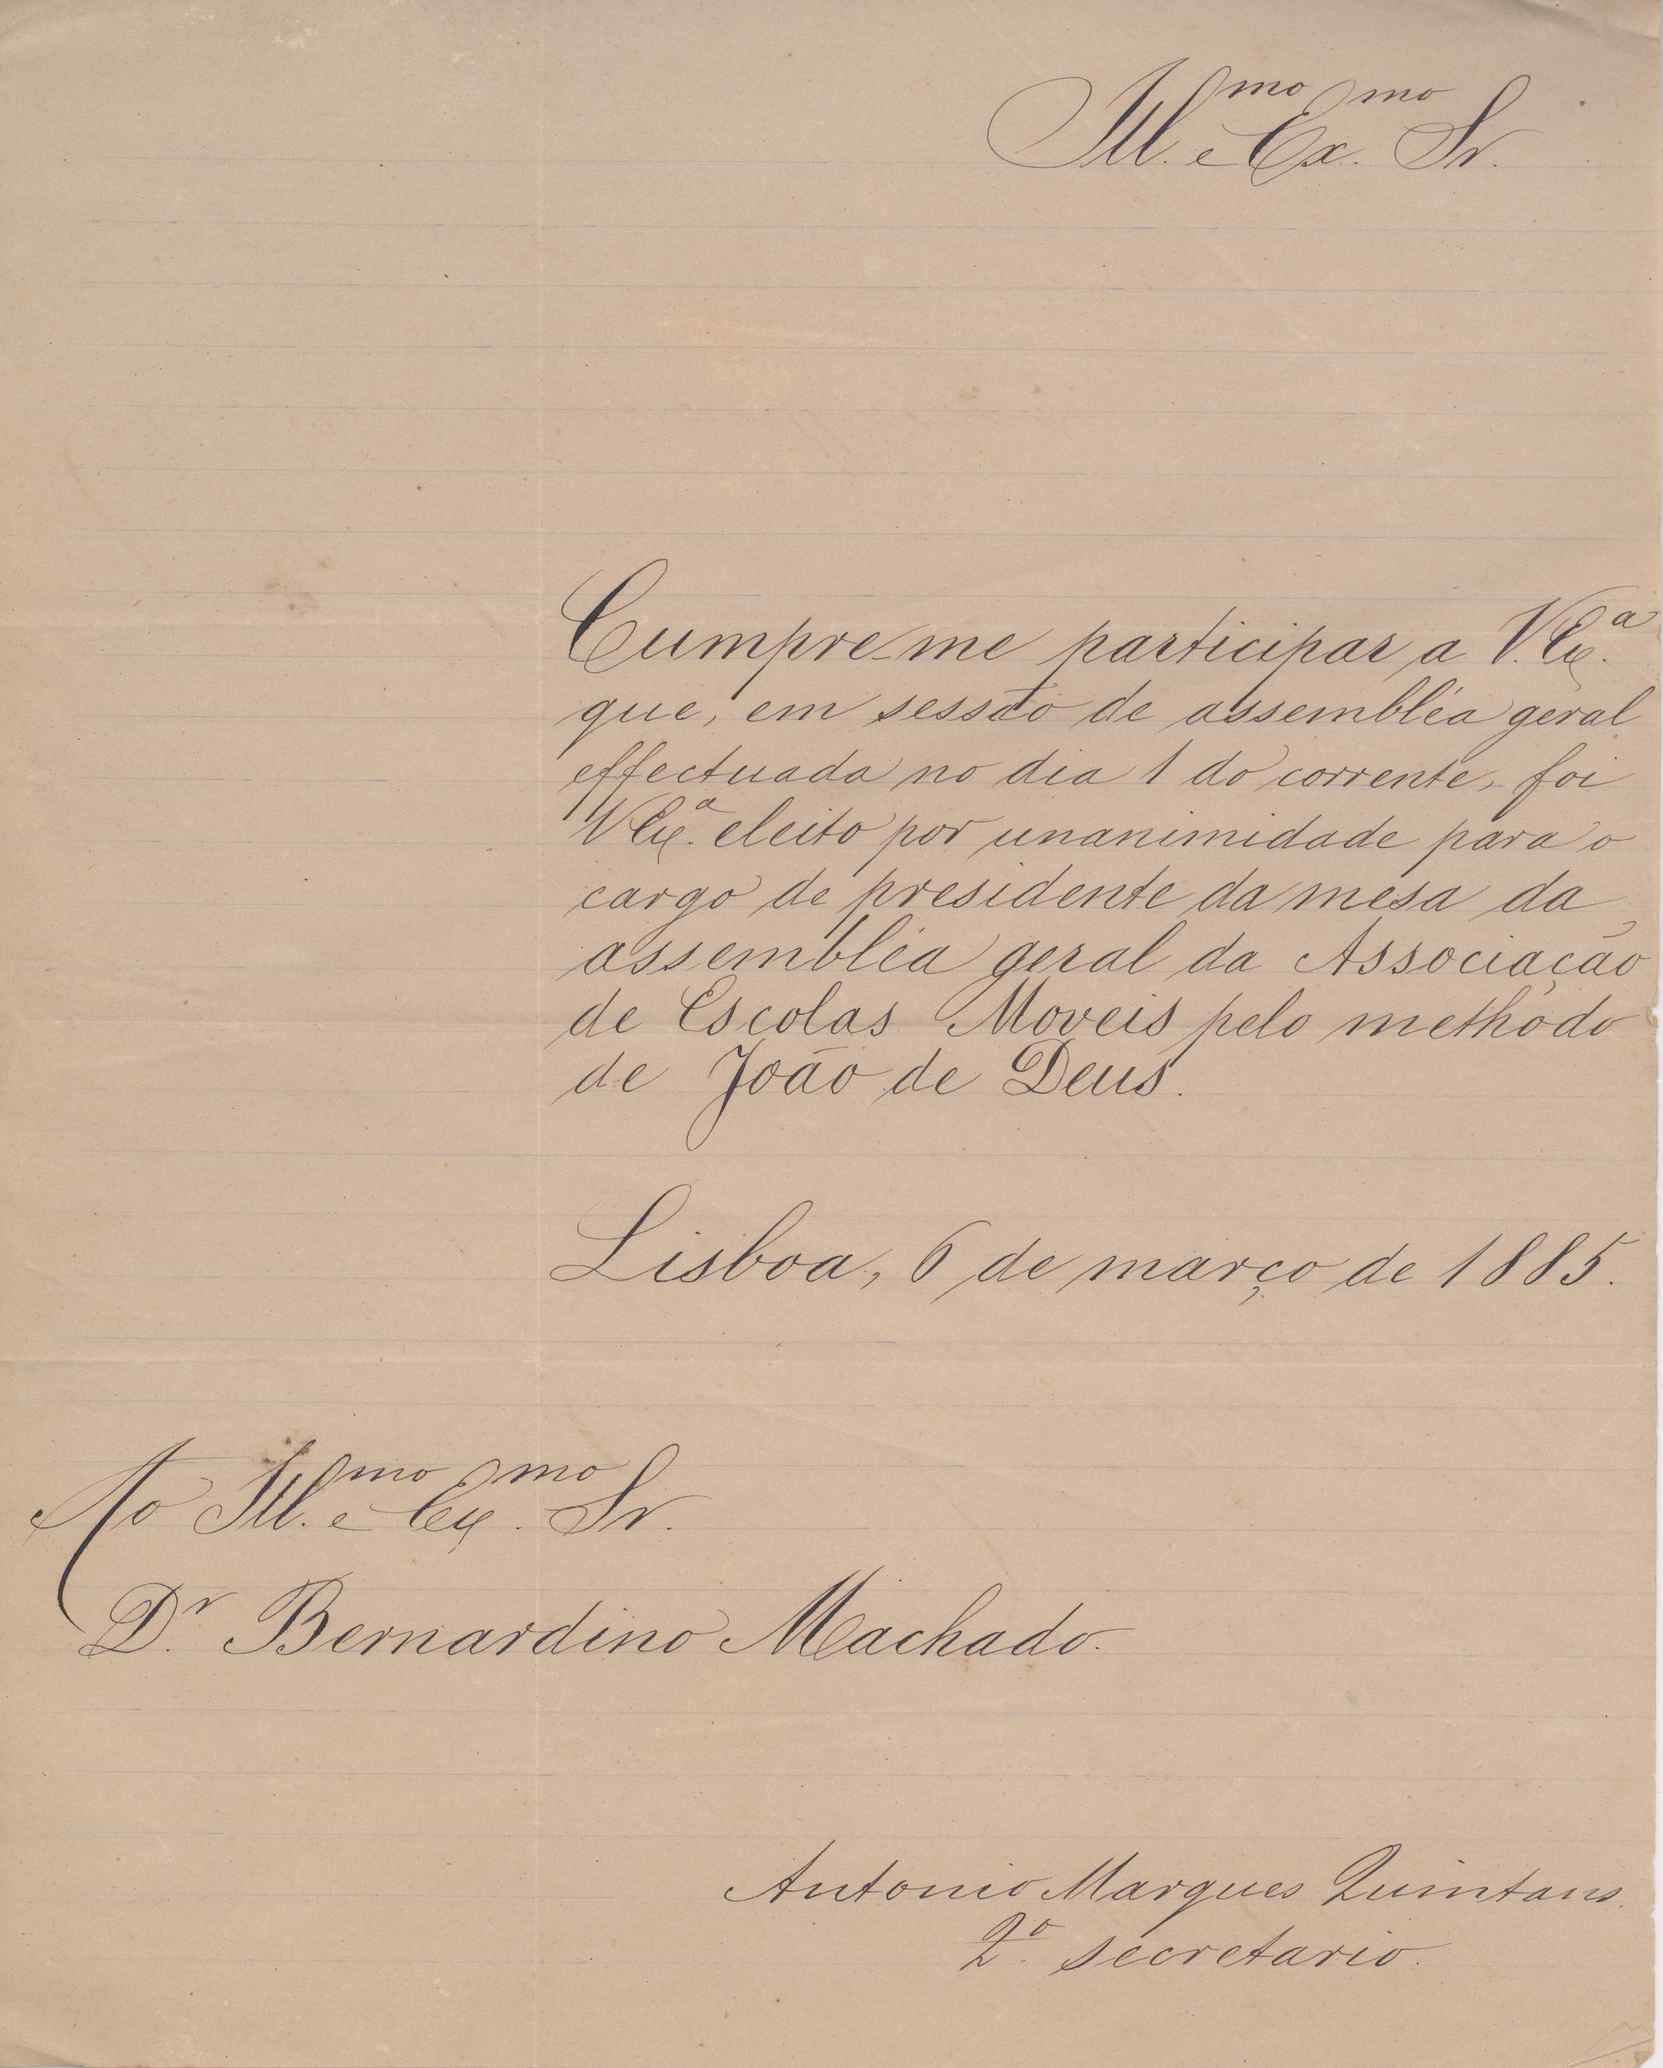 Ill.mo e Ex.mo Sr.
Cumpre-me participar a V. Ex.a
que, em sessão de assembléa geral
effectuada no dia 1 do corrente, foi
V Ex.a eleito por unanimidade para o
cargo de presidente da mesa da
assembléa geral da Associação
de Escolas Moveis pelo methodo
de João de Deus.
Lisboa, 6 de março de 1885.
Ao Ill.mo e Ex.mo Sr.
D.r Bernardino Machado.
Antonio Marques Quintans.
2.o secretario.